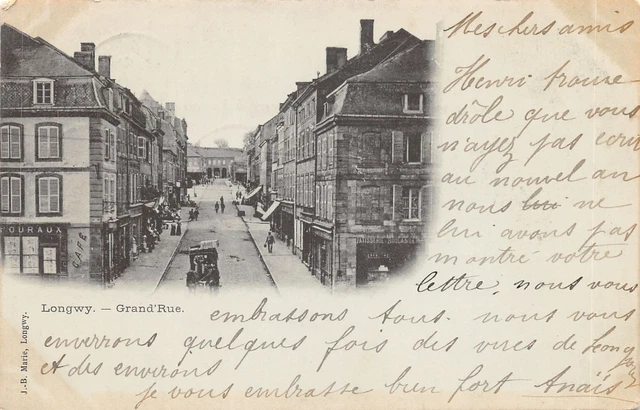 Mes chers amis
Henri trouve
drôle que vous
n'ayez pas écrit
au nouvel an
nous lui ne
lui avons pas
montré votre
lettre, nous vous
embrassons tous. nous vous
enverrons quelques fois des vues de Longwy
et des environs
je vous embrasse bien fort Anaïs
OURAUX
CAFÉ
Longwy. — Grand'Rue.
J.-B. Marie, Longwy.